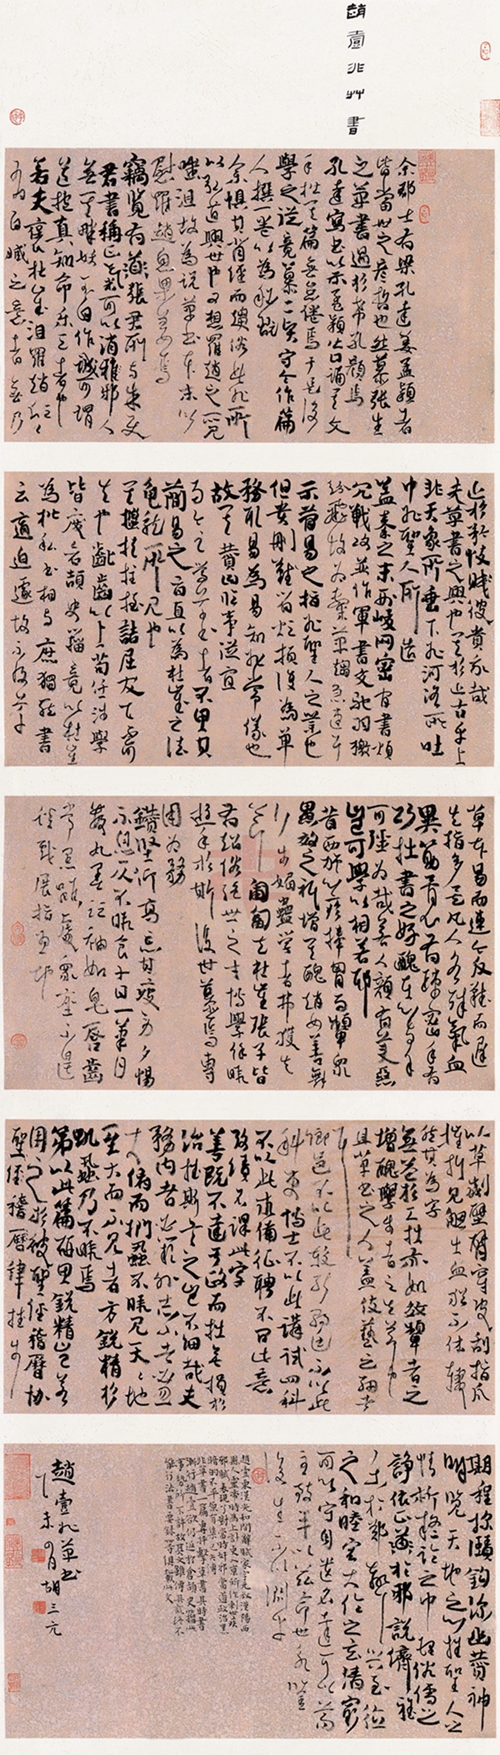 趙壹非艸書
余郡士有梁孔達姜孟穎者
皆當世之彥哲也然慕張生
之草書過於希孔顏焉
孔達寫書以示孟穎皆口誦其文
手楷其篇無怠倦焉于是後
學之徒競慕二賢守令作篇
人撰一卷以為秘玩
余懼其背經而趨俗此非所
以弘道興世也又想羅趙之所見
嗤沮故為說草書本末以
慰羅趙息梁姜焉
竊覽有道張君所與朱使
君書稱正氣可以消邪人
無其釁妖不自作誠可謂
信道抱真知命樂天者也
若夫褒杜崔沮羅趙忻忻
有自臧之意者無乃
近於矜忮賤彼貴我哉
夫草書之興也其於近古乎上
非天象所垂下非河洛所吐
中非聖人所造
蓋秦之末刑峻网密官書煩
冗戰攻並作軍書交馳羽檄
紛飛故為隸草趨急速耳
示簡易之指非聖人之業也
但貴刪難省煩損復為單
務取易為易知非常儀也
故其贊曰臨事從宜
而今之學草書者不思其
簡易之旨直以為杜崔之法
龜龍所見也
其扶拄挃詰屈犮乙不可
失也齔齒以上苟任涉學
皆廢倉頡史籀竟以杜崔
為楷私書相與庶獨就書
云適迫遽故不及草
草本易而速今反難而遲
失指多矣凡人各殊氣血
異筋骨心有疏密手有
巧拙書之好醜在心與手
可強為哉若人顏有美惡
豈可學以相若耶
昔西施心疹捧胸而顰眾
愚效之祇增其醜趙女善舞
行步媚蠱學者弗獲失
節匍匐夫杜崔張子皆
有超俗絕世之才博學餘暇
遊手於斯後世慕焉專
用為務
鑽堅仰高忘其疲勞夕惕
不息仄不暇食十日一筆月
數丸墨領袖如皂唇齒
常黑雖處眾座不遑
談戲展指畫地
以草劌壁臂穿皮刮指爪
摧折見䚡出血猶不休輟
然其為字
無益於工拙亦如效顰者之
增醜學步者之失節也
且草書之人蓋伎藝之細者
耳
鄉邑不以此較能朝廷不以此
科吏博士不以此講試四科
不以此求備征聘不問此意
考績不課此字
善既不達於政而拙無損於
治推斯言之豈不細哉夫
務內者必闕外志小者必忽
大俯而捫蝨不暇見天天地
至大而不見者方銳精於
蟣蝨乃不暇焉
第以此篇研思銳精豈若
用之於彼聖經稽曆協
聖經稽曆律推步
期程探賾鉤深幽贊神
明覽天地之心推聖人之
情析疑論之中理俗儒之
諍依正道於邪說儕雅
樂於鄭聲興至德
之和睦宏大倫之玄清窮
可以守身遺名達可以尊
主致平以茲命世永鑒
後生不亦淵乎
趙壹非草書